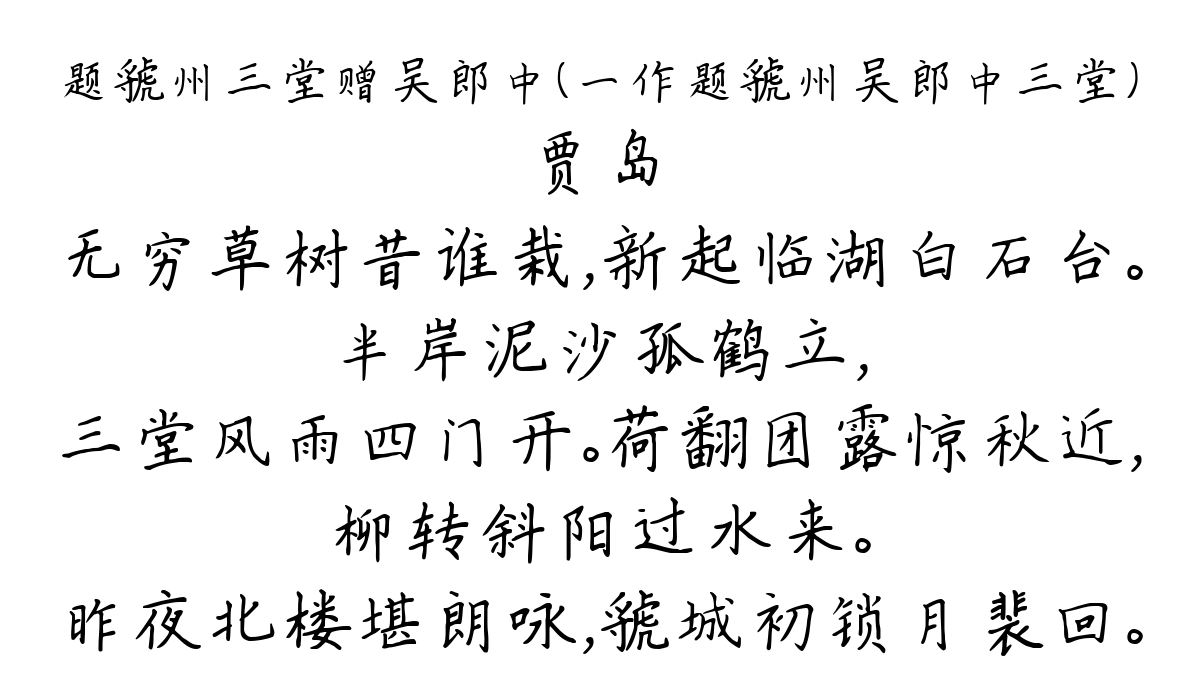 题虢州三堂赠吴郎中(一作题虢州吴郎中三堂)
贾岛
无穷草树昔谁栽,新起临湖白石台。
半岸泥沙孤鹤立,
三堂风雨四门开。荷翻团露惊秋近,
柳转斜阳过水来。
昨夜北楼堪朗咏,虢城初锁月裴回。